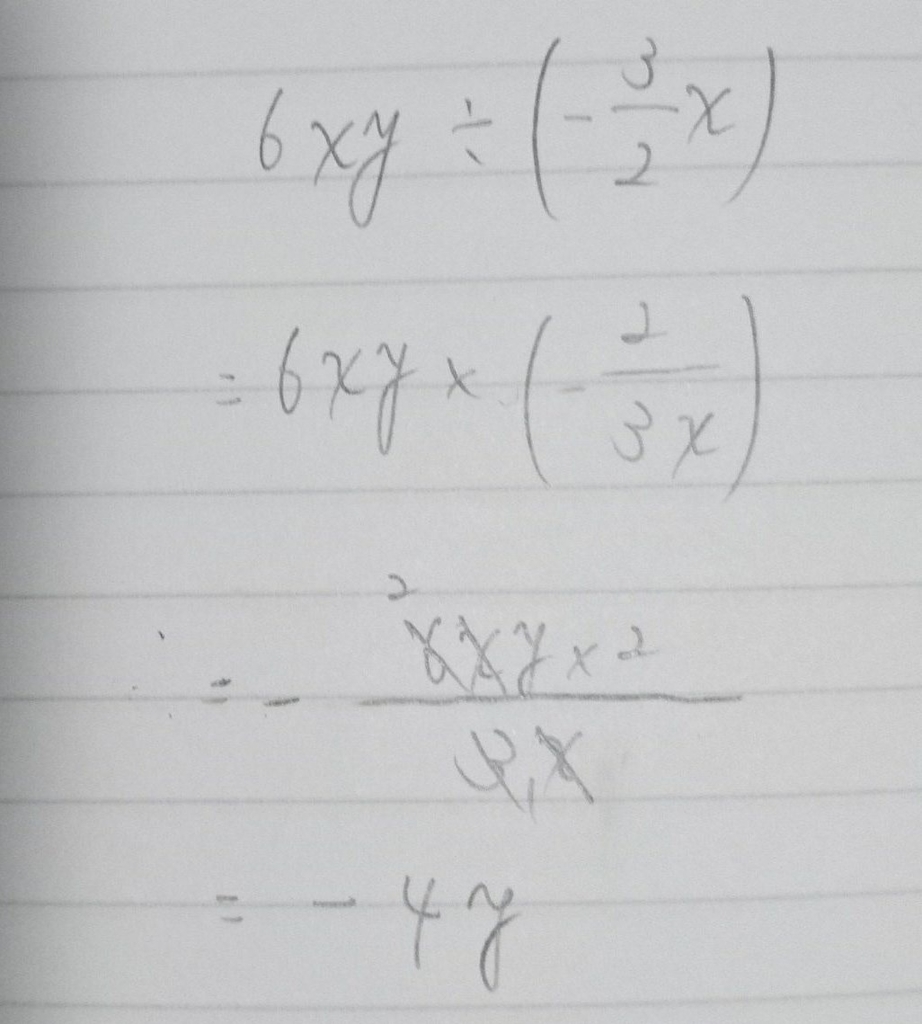 6xy ÷ (-3/2 x)
= 6xy × (-2/3x)
= - 6xy × 2 / 3x
2 1
= - 4y